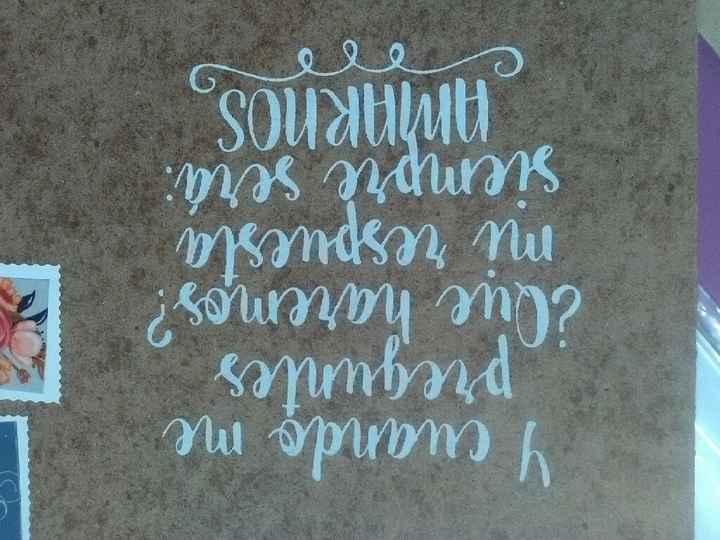 Y cuando me
preguntes
¿Que haremos?
mi respuesta
siempre será:
AMARNOS